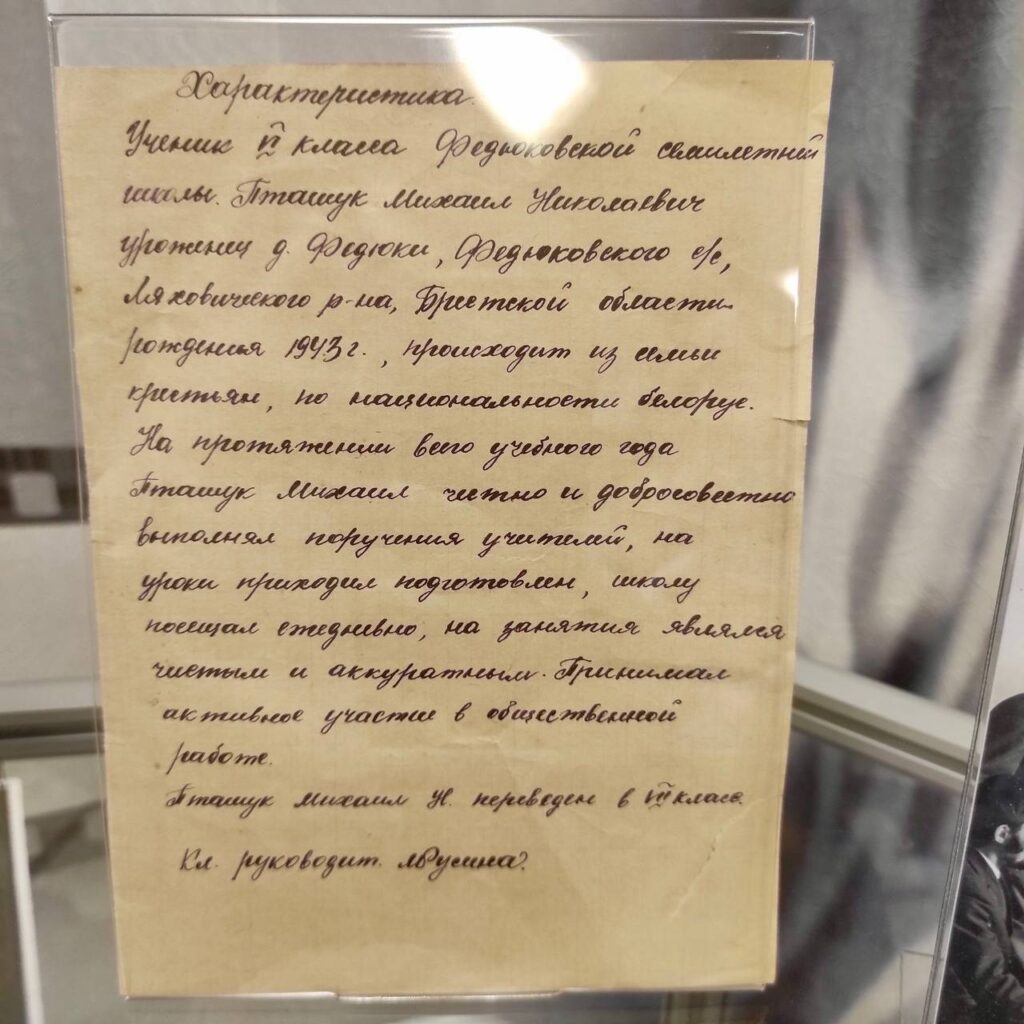 Характеристика
Ученик VI класса Федюковской семилетней
школы. Пташук Михаил Николаевич
уроженец д. Федюки, Федюковского с/с,
Ляховичского р-на, Брестской области
рождения 1943 г., происходит из семьи
крестьян, по национальности белорус.
На протяжении всего учебного года
Пташук Михаил честно и добросовестно
выполнял поручения учителей, на
уроки приходил подготовлен, школу
посещал ежедневно, на занятия являлся
чистым и аккуратным. Принимал
активное участие в общественной
работе.
Пташук Михаил Н. переведен в VII класс.
Кл. руководит.